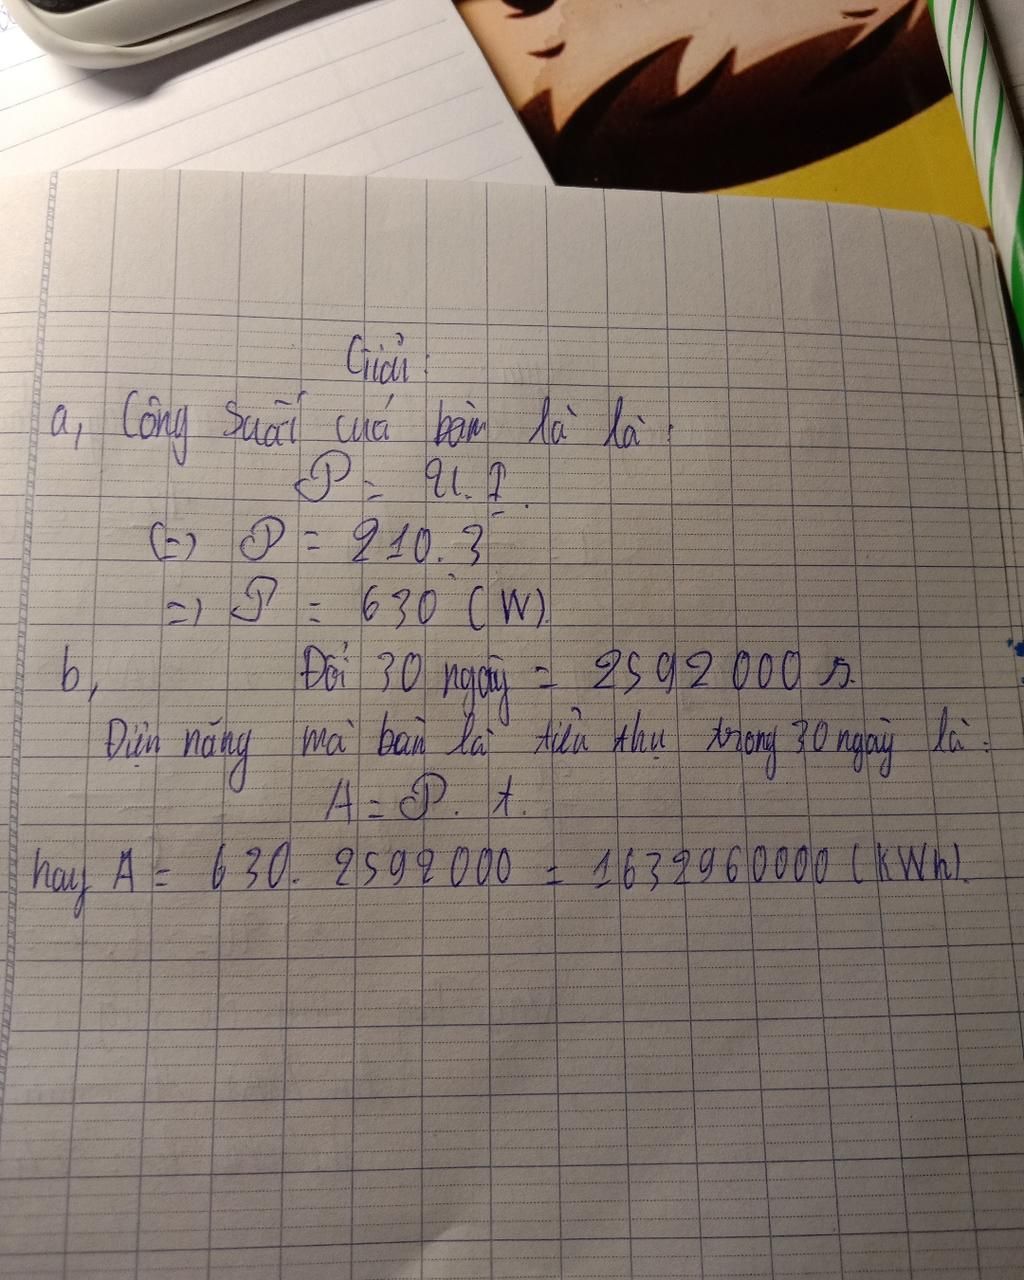 Giải:
a, Công suất cuả bàn là là:
P = U. I.
(=) P = 210. 3
=) P = 630 (W).
b, Đổi 30 ngày = 2592000 s.
Điện năng mà bàn là tiêu thụ trong 30 ngày là:
A = P. t.
hay A = 630. 2592000 = 1632960000 (KWh).